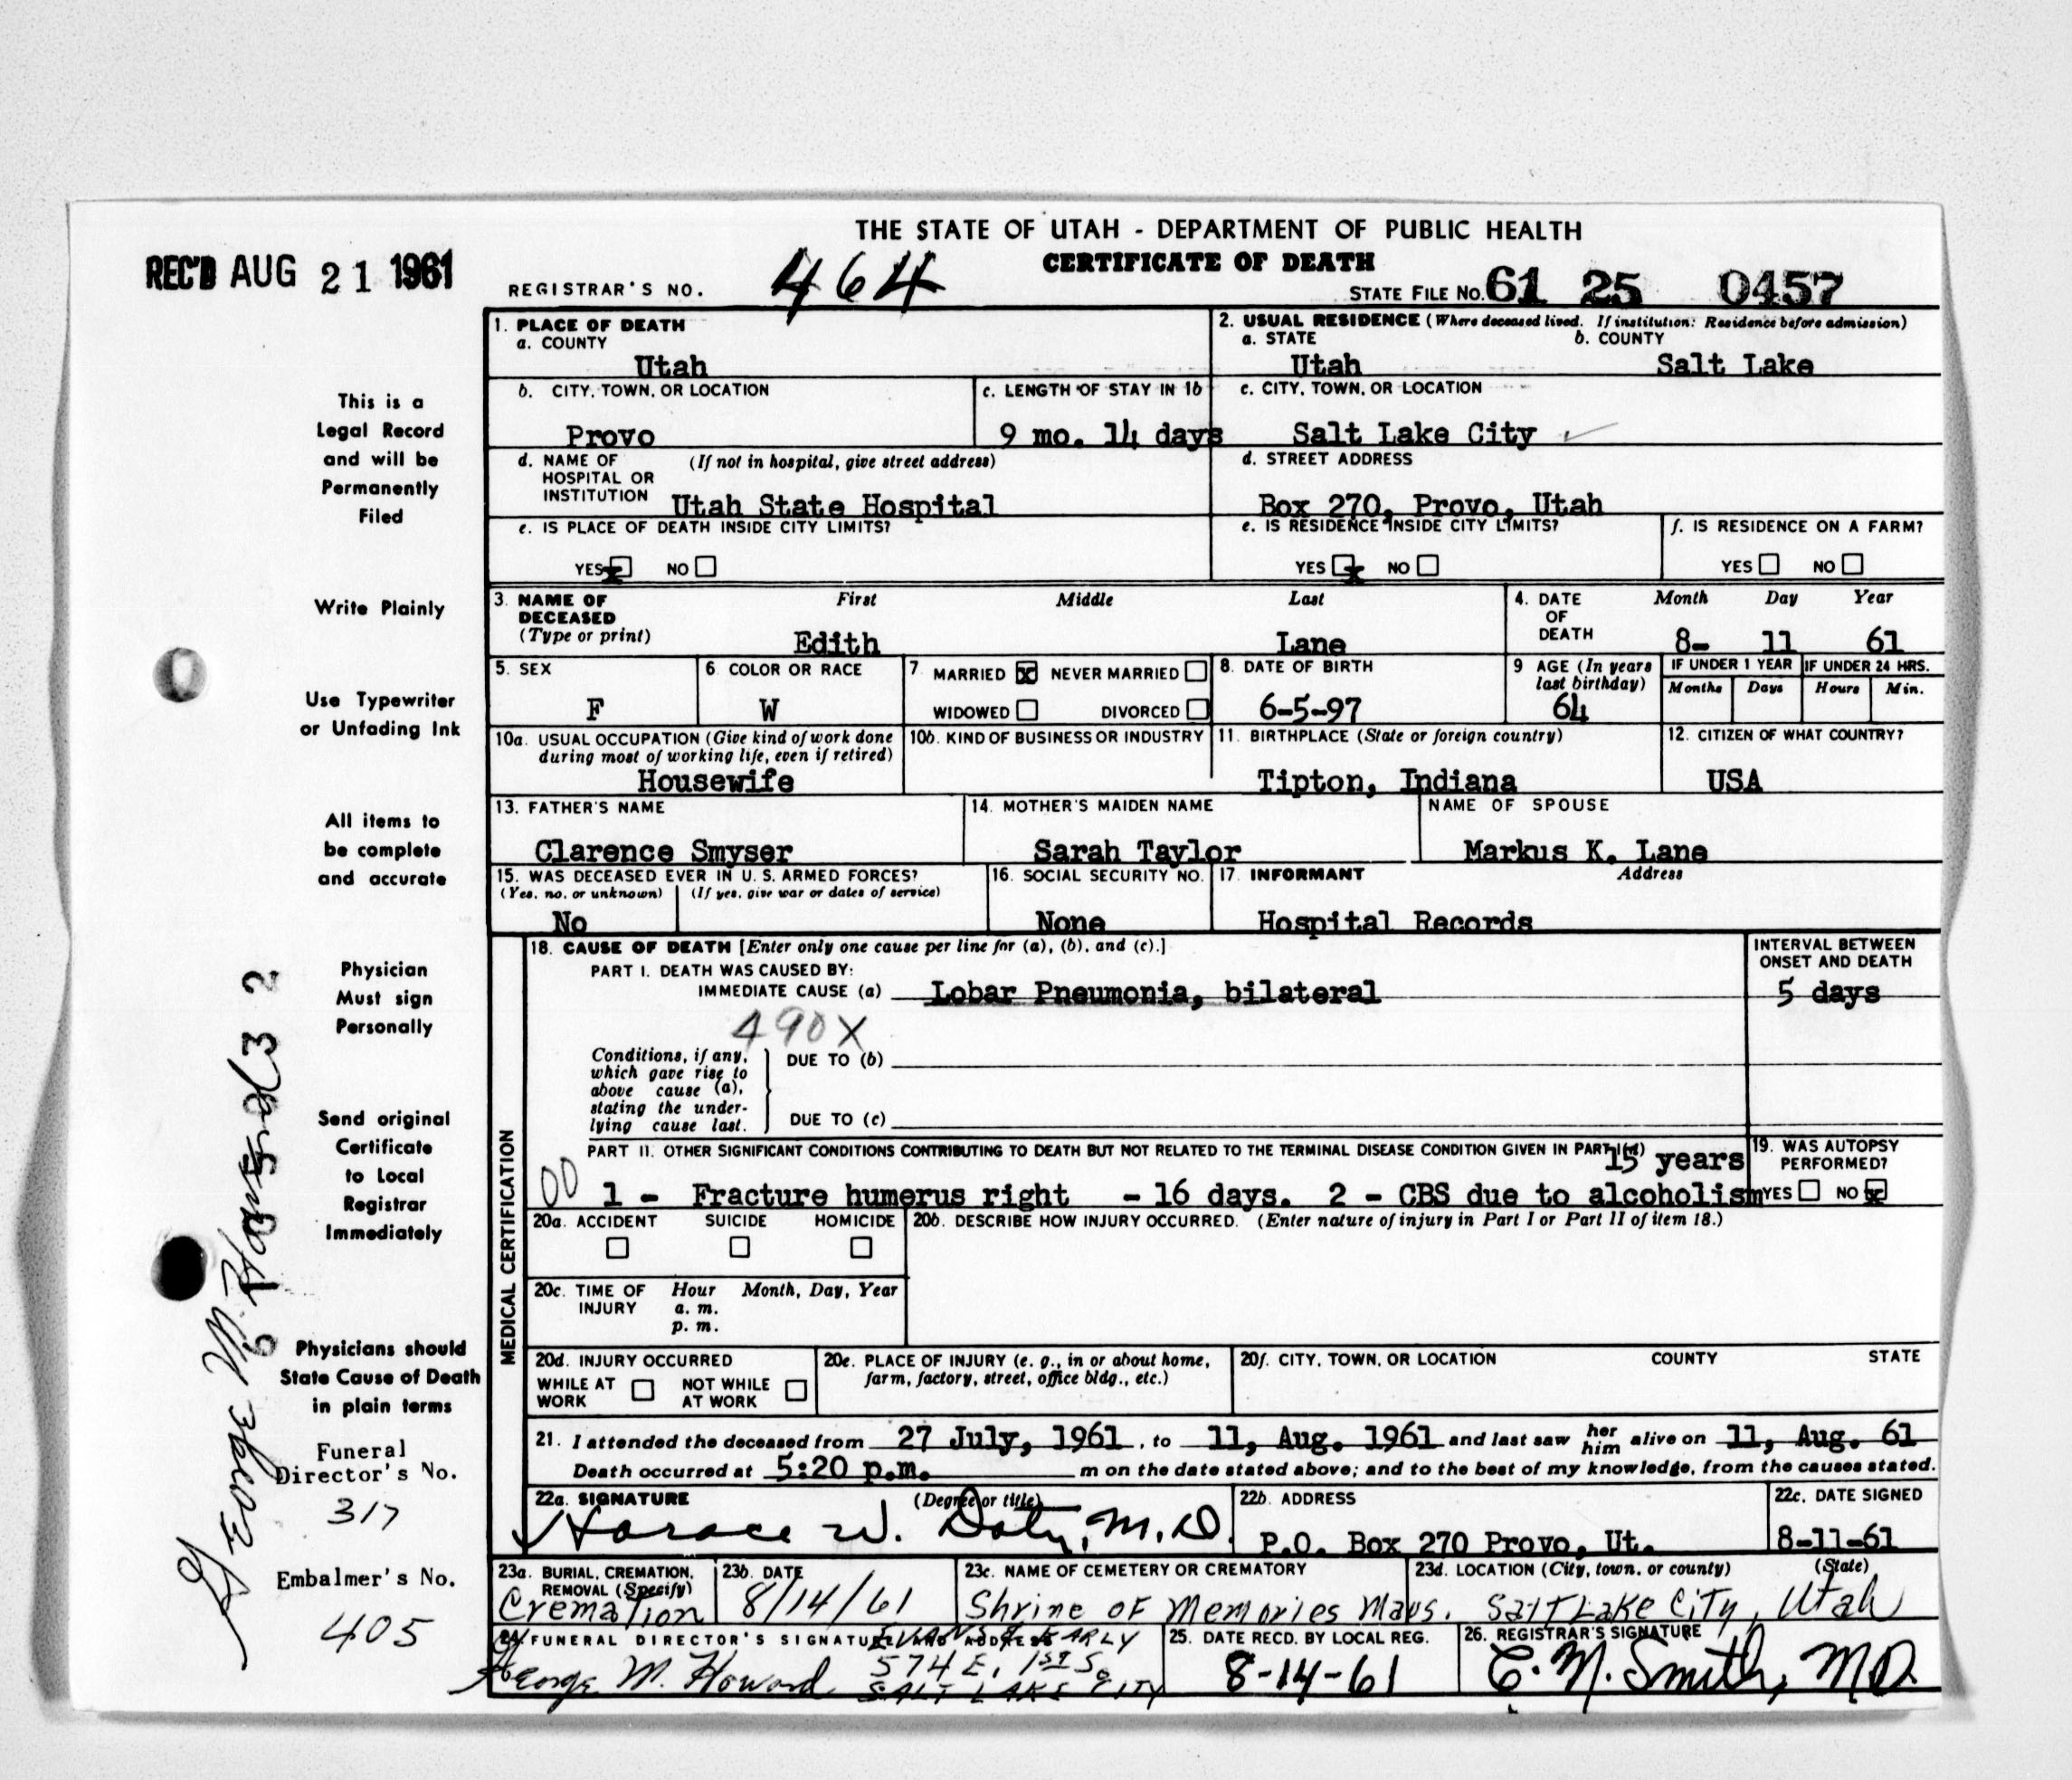 THE STATE OF UTAH - DEPARTMENT OF PUBLIC HEALTH
CERTIFICATE OF DEATH
REC'D AUG 21 1961
REGISTRAR'S NO. 464
STATE FILE NO. 61 25 0457
This is a
Legal Record
and will be
Permanently
Filed
Write Plainly
Use Typewriter
or Unfading Ink
All items to
be complete
and accurate
Physician
Must sign
Personally
Send original
Certificate
to Local
Registrar
Immediately
Physicians should
State Cause of Death
in plain terms
Funeral
Director's No.
317
Embalmer's No.
405
George M. Howard
1. PLACE OF DEATH
a. COUNTY
Utah
2. USUAL RESIDENCE (Where deceased lived. If institution: Residence before admission)
a. STATE b. COUNTY
Utah Salt Lake
b. CITY, TOWN, OR LOCATION
Provo
c. LENGTH OF STAY IN 1b
9 mo. 14 days
c. CITY, TOWN, OR LOCATION
Salt Lake City
d. NAME OF (If not in hospital, give street address)
HOSPITAL OR
INSTITUTION Utah State Hospital
d. STREET ADDRESS
Box 270, Provo, Utah
e. IS PLACE OF DEATH INSIDE CITY LIMITS?
YES x NO
e. IS RESIDENCE INSIDE CITY LIMITS?
YES x NO
f. IS RESIDENCE ON A FARM?
YES NO
3. NAME OF First Middle Last
DECEASED
(Type or print) Edith Lane
4. DATE Month Day Year
OF
DEATH 8- 11 61
5. SEX
F
6. COLOR OR RACE
W
7. MARRIED X NEVER MARRIED
WIDOWED DIVORCED
8. DATE OF BIRTH
6-5-97
9 AGE (In years
last birthday)
64
IF UNDER 1 YEAR IF UNDER 24 HRS.
Months Days Hours Min.
10a. USUAL OCCUPATION (Give kind of work done
during most of working life, even if retired)
Housewife
10b. KIND OF BUSINESS OR INDUSTRY
11. BIRTHPLACE (State or foreign country)
Tipton, Indiana
12. CITIZEN OF WHAT COUNTRY?
USA
13. FATHER'S NAME
Clarence Smyser
14. MOTHER'S MAIDEN NAME
Sarah Taylor
NAME OF SPOUSE
Markus K. Lane
15. WAS DECEASED EVER IN U. S. ARMED FORCES?
(Yes, no, or unknown) (If yes, give war or dates of service)
No
16. SOCIAL SECURITY NO.
None
17. INFORMANT Address
Hospital Records
MEDICAL CERTIFICATION
18. CAUSE OF DEATH [Enter only one cause per line for (a), (b), and (c).]
INTERVAL BETWEEN
ONSET AND DEATH
PART I. DEATH WAS CAUSED BY:
IMMEDIATE CAUSE (a) Lobar Pneumonia, bilateral 5 days
490X
Conditions, if any,
which gave rise to
above cause (a),
stating the under-
lying cause last.
DUE TO (b)
DUE TO (c)
PART II. OTHER SIGNIFICANT CONDITIONS CONTRIBUTING TO DEATH BUT NOT RELATED TO THE TERMINAL DISEASE CONDITION GIVEN IN PART I(a)
15 years
00 1 - Fracture humerus right - 16 days. 2 - CBS due to alcoholism
19. WAS AUTOPSY
PERFORMED?
YES NO x
20a. ACCIDENT SUICIDE HOMICIDE
20b. DESCRIBE HOW INJURY OCCURRED. (Enter nature of injury in Part I or Part II of item 18.)
20c. TIME OF Hour Month, Day, Year
INJURY a. m.
p. m.
20d. INJURY OCCURRED
WHILE AT NOT WHILE
WORK AT WORK
20e. PLACE OF INJURY (e. g., in or about home,
farm, factory, street, office bldg., etc.)
20f. CITY, TOWN, OR LOCATION COUNTY STATE
21. I attended the deceased from 27 July, 1961, to 11, Aug. 1961 and last saw her him alive on 11, Aug. 61
Death occurred at 5:20 p.m. m on the date stated above; and to the best of my knowledge, from the causes stated.
22a. SIGNATURE (Degree or title)
Horace W. Doty, M.D.
22b. ADDRESS
P.O. Box 270 Provo, Ut.
22c. DATE SIGNED
8-11-61
23a. BURIAL, CREMATION,
REMOVAL (Specify)
Cremation
23b. DATE
8/14/61
23c. NAME OF CEMETERY OR CREMATORY
Shrine of Memories Maus.
23d. LOCATION (City, town, or county) (State)
Salt Lake City, Utah
24 FUNERAL DIRECTOR'S SIGNATURE AND ADDRESS
EVANS & EARLY
George M. Howard 574 E. 1st So
SALT LAKE CITY
25. DATE RECD. BY LOCAL REG.
8-14-61
26. REGISTRAR'S SIGNATURE
C. M. Smith, MD.